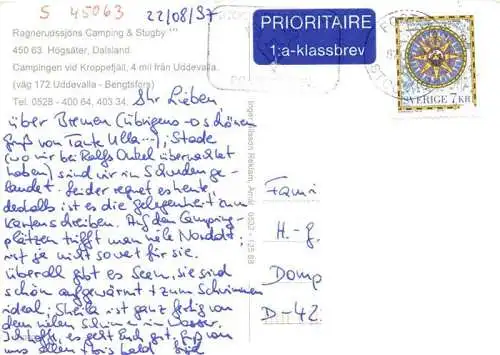 S 45063
22/08/97
Ragnerudssjöns Camping & Stugby
450 63 Högsäter, Dalsland
Campingen vid Kroppefjäll, 4 mil från Uddevalla.
(väg 172 Uddevalla - Bengtsfors)
Tel. 0528 - 400 64, 403 34.
PRIORITAIRE
1:a-klassbrev
SVERIGE 7 KR
Ihr Lieben
über Bremen (übrigens schönen
Gruß von Tante Ulla...), Stade
(wo wir bei Ralfs Onkel übernachtet
haben) sind wir in Schweden ge-
landet. Leider regnet es heute,
deshalb ist es die Gelegenheit zum
Kartenschreiben. Auf den Camping-
plätzen trifft man viele Norddt.,
ist ja nicht so weit für sie.
Überall gibt es Seen, sie sind
schön aufgewärmt + zum Schwimmen
ideal. Sheila ist ganz fertig von
dem vielen Schwimmen im Wasser.
Ich hoffe, es geht Euch gut, Gruß von
uns allen + bis bald
Fami
H.-g.
Domp
D-42